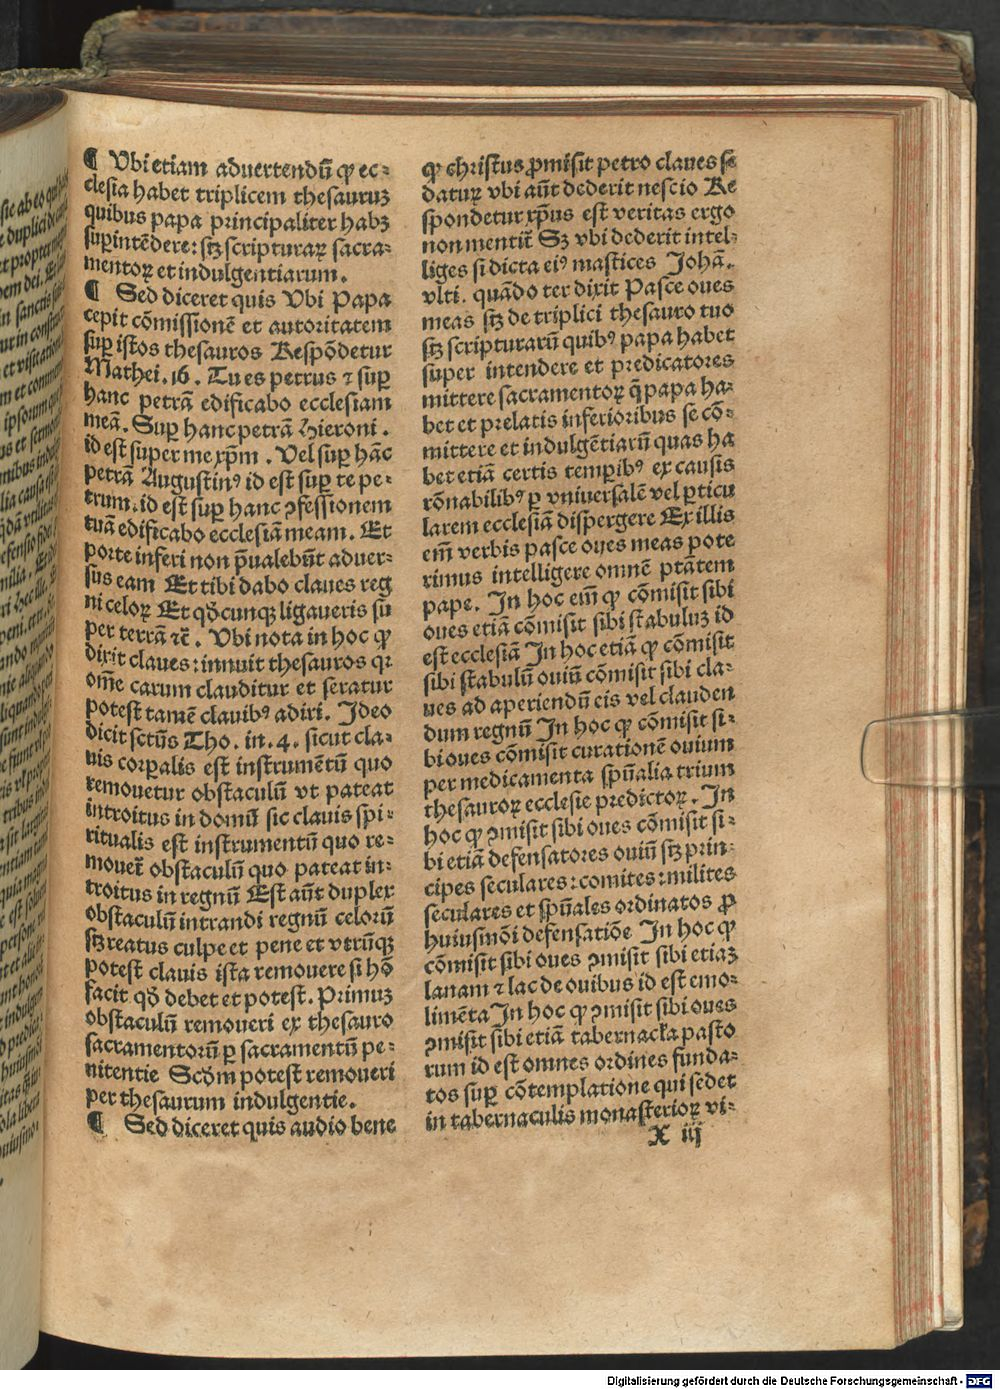 ¶ Vbi etiam aduertendū ꝙ ec⸗
clesia habet triplicem thesauruꝫ
quibus papa principaliter habꝫ
suꝑintēdere: sꝫ scripturaꝝ sacra⸗
mentoꝝ et indulgentiarum.
¶ Sed diceret quis Vbi Papa
cepit cōmissionē et autoritatem
suꝑ istos thesauros Respōdetur
Mathei .16. Tu es petrus ⁊ suꝑ
hanc petrā edificabo ecclesiam
meā. Suꝑ hanc petrā Hieroni.
id est super me xp̄m. Vel suꝑ hāc
petrā Augustinꝰ id est suꝑ te pe⸗
trum. id est suꝑ hanc ꝯfessionem
tuā edificabo ecclesiā meam. Et
porte inferi non p̄ualebūt aduer⸗
sus eam Et tibi dabo claues reg
ni celoꝝ Et qd̄cunqꝫ ligaueris su
per terrā ⁊c̄. Vbi nota in hoc ꝙ
dixit claues: innuit thesauros qꝛ
om̄e carum clauditur et seratur
potest tamē clauibꝰ adiri. Ideo
dicit sctūs Tho. in .4. sicut cla⸗
uis corꝑalis est instrumētū quo
remouetur obstaculū vt pateat
introitus in domū sic clauis spi⸗
ritualis est instrumentū quo re⸗
mouet̄ obstaculū quo pateat in⸗
troitus in regnū Est aūt duplex
obstaculū intrandi regnū celorū
sꝫ reatus culpe et pene et vtrūqꝫ
potest clauis ista remouere si hō
facit qd̄ debet et potest. Primuꝫ
obstaculū remoueri ex thesauro
sacramentorū ꝑ sacramentū pe⸗
nitentie Scd̄m potest remoueri
per thesaurum indulgentie.
¶ Sed diceret quis audio bene
ꝙ christus ꝓmisit petro claues se
daturꝝ vbi aūt dederit nescio Re
spondetur xp̄us est veritas ergo
non mentit̄ Sꝫ vbi dederit intel⸗
liges si dicta eiꝰ mastices Johā.
vlti. quādo ter dixit Pasce oues
meas sꝫ de triplici thesauro tuo
sꝫ scripturarū quibꝰ papa habet
super intendere et predicatores
mittere sacramentoꝝ q̄ papa ha⸗
bet et prelatis inferioribus se cō⸗
mittere et indulgētiarū quas ha
bet etiā certis temꝑibꝰ ex causis
rōnabilibꝰ ꝑ vniuersalē vel ꝑticu
larem ecclesiā dispergere Ex illis
em̄ verbis pasce oues meas pote
rimus intelligere omnē ptātem
pape. In hoc em̄ ꝙ cōmisit sibi
oues etiā cōmisit sibi stabuluꝫ id
est ecclesiā In hoc etiā ꝙ cōmisit
sibi stabulū ouiū cōmisit sibi cla⸗
ues ad aperiendū eis vel clauden
dum regnū In hoc ꝙ cōmisit si⸗
bi oues cōmisit curationē ouium
per medicamenta sp̄ualia trium
thesauroꝝ ecclesie predictoꝝ. In
hoc ꝙ ꝯmisit sibi oues cōmisit si⸗
bi etiā defensatores ouiū sꝫ prin⸗
cipes seculares: comites: milites
seculares et sp̄uales ordinatos ꝓ
huiusmōi defensatiōe In hoc ꝙ
cōmisit sibi oues ꝯmisit sibi etiaꝫ
lanam ⁊ lac de ouibus id est emo⸗
limēta In hoc ꝙ ꝯmisit sibi oues
ꝯmisit sibi etiā tabernacl̄a pasto
rum id est omnes ordines funda⸗
tos suꝑ cōtemplatione qui sedet
in tabernaculis monasterioꝝ vi⸗
X iij
Digitalisierung gefördert durch die Deutsche Forschungsgemeinschaft - DFG